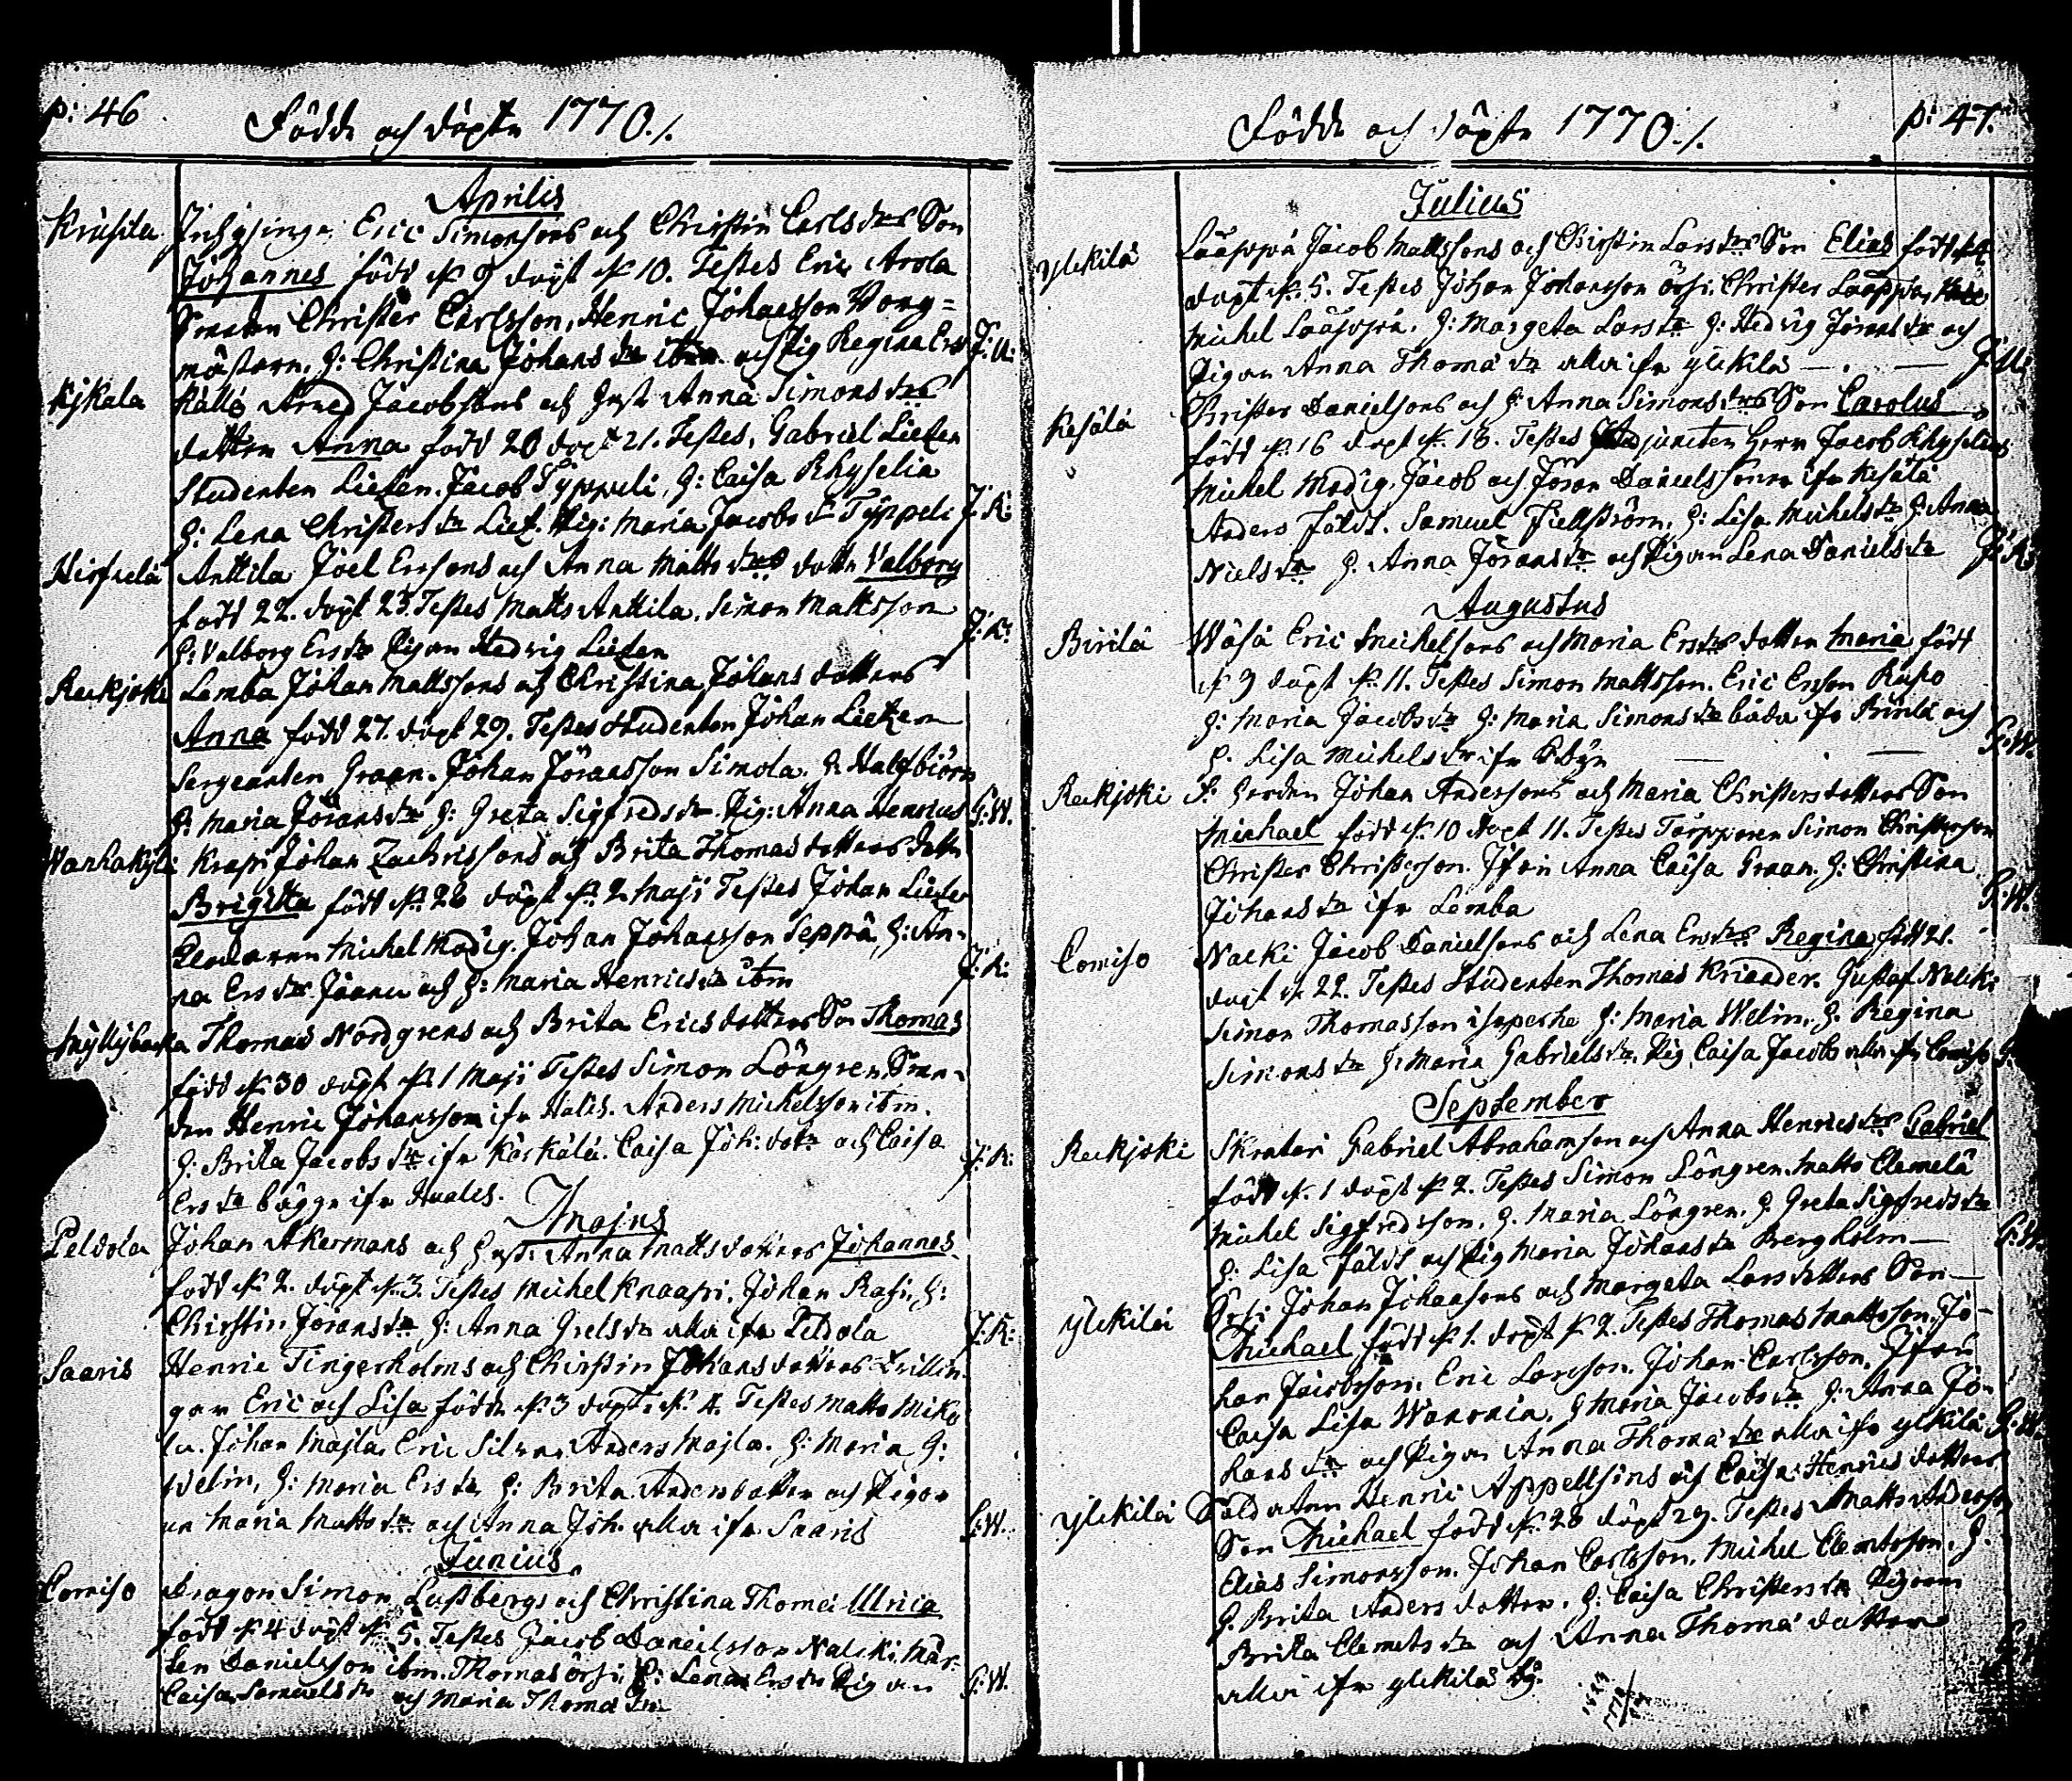 p: 46
Födde och döpte 1770./.
Aprilis
Krusila Eric Simonsons och Christin Carls dtrs Son
Johannes född d. 9 döpt d. 10. Testes Eric Arola
Smeden Christer Carlsson, Henric Johansson Vong=
mästarn. H: Christina Johans dtr ibm och Pig Regina Ers J: K:
Kjkala Källö Jacobssons och Hust Anna Simons dtrs
dotter Anna född 20 döpt 21. Testes, Gabriel Lietzen
Studenten Lietzen. Jacob Typpeli, H: Caisa Rhyselia
H: Lena Christers dtr Liet. Pig: Maria Jacobs dr Typpeli J: K:
Anttila Joel Ersons och Anna Matts dtrs dotter Valborg
född 22. döpt 23. Testes Matts Anttila, Simon Mattsson
H: Valborg Ers dtr Pigan Hedvig Lietzen J: K:
Reckjoki Lemba Johan Mattssons och Christina Johans dotters
Anna född 27. döpt 29. Testes Studenten Johan Lietzen
Sergeanten Graan. Johan Jöransson Simola. H: Halfbiörn
H: Maria Jörans dtr H: Greta Sigfreds dtr Pig: Anna Henrics G: W.
Wanhakyli Krapi Johan Zachrissons och Brita Thomas dotters dotter
Brigitta född d. 28 döpt d. 2 Maji Testes Johan Lietzen
Michel Modig. Johan Johansson Seppä, H: An-
na Ers dtr och H: Maria Henrics dtr ibm J: K:
Myllybacka Thomas Nordgrens och Brita Erics dotters Son Thomas
född d. 30 döpt d. 1 Maji Testes Simon Löngren Sme-
den Henric Johansson ifr Halis. Anders Michelsson ibm.
H: Brita Jacobs dtr ifr Kärkälä. Caisa Joh: dotr och Caisa J: K:
Ers dtr bägge ifr Huales.
Majus
Peldola Johan Åkermans och Hust: Anna Matts dotters Johannes
född d. 2. döpt d. 3. Testes Michel Knaapi. Johan Rasi, H:
Christin Jörans dtr H: Anna Grels dtr alla ifr Peldola J: K:
Saaris Henric Tingerholms och Christin Johans dotters Tvillin-
gar Eric och Lisa födde d. 3 döpte d. 4. Testes Matts Miko
la. Johan Majla, Eric Anders Majla. H: Maria H:
Welin, H: Maria Ers dtr H: Brita Anders dotter och Pigor
na Maria Matts dtr och Anna Joh. alla ifr Saaris G: W.
Junius
Comiso Dragon Simon Lustbergs och Christina Thomæ Ulrica
född d. 4 döpt d. 5. Testes Jacob Danielsson Nalcki, Mår-
ten Danielsson ibm. Thomas örsi, H: Lena Ers dtr Pigan
Caisa Samuels dtr och Maria Thomæ dtr G: W.
Födde och döpte 1770./. p: 47.
Julius
Ylikilä Läässpä Jacob Mattssons och Christin Lars dtrs Son Elias född d. 4
döpt d. 5. Testes Johan Johansson örsi. Christer Lääspä,
Michel Lääspä. H: Margeta Lars dtr H: Hedvig Jörans dtr och
Pigan Anna Thomæ dtr alla ifr Ylikilä
Kesälä Christer Danielsons och H: Anna Simons dtrs Son Carolus
född d. 16 döpt d. 18. Testes Adjuncten Herr Jacob Rhyselius
Michel Modig. Jacob och Jöran Danielssöner ifr Kesälä
Anders Fäldt. Samuel Fiellström. H: Lisa Michels dtr H: Anna
Niels dtr H. Anna Jörans dtr och Pigan Lena Daniels dtr J: K:
Augustus
Birilä Wäsä Eric Michelsons och Maria Ers dtrs dotter Maria född
d. 9 döpt d. 11. Testes Simon Mattsson. Eric Ersson Rupo
H: Maria Jacobs dtr H: Maria Simons dtr båda ifr Birilä och
H. Lisa Michels dtr ifr G: W.
Reckjoki Johan Anderssons och Maria Christers dotters Son
Michael född d. 10 döpt 11. Testes Torpparen Simon Christerson
Christer Christerson. Jfru Anna Caisa Graan. H: Christina
Johans dtr ifr Lemba G: W.
Comiso Nalcki Jacob Danielsons och Lena Ers dtrs Regina född 21.
döpt d. 22. Testes Studenten Thomas Kriander. Gustaf Nalcki
Simon Thomasson isoperhe H: Maria Welin. H. Regina
Simons dtr H: Maria Gabriels dtr, Pig Caisa Jacobs alla ifr Comiso
September
Reckjoki Skrateri Gabriel Abrahamson och Anna Henrics dtrs Gabriel
född d. 1 döpt d. 2. Testes Simon Löngren. Matts Clemelä
Michel Sigfredsson. H. Maria Löngren. H. Greta Sigfreds dtr
H: Lisa Fäldt och Pig Maria Johans dtr Bergholm G: W.
Ylikilä Örsi Johan Johansons och Margeta Lars dotters Son
Michael född d. 1. döpt d. 2. Testes Thomas Mattsson, Jo-
han Jacobsson. Eric Larsson. Johan Carlsson. Jfru
Caisa Lisa Wanonia. H Maria Jacobs dtr H: Anna Jo-
hans dtr och Pigan Anna Thomæ dtr alla ifr Ylikilä G: W.
Ylikilä Soldaten Henric Appellsins och Caisa Henrics dotters
Son Michael född d. 28 döpt 29. Testes Matts Andersson
Elias Simonsson. Johan Carlsson. Michel Clemetsson. H.
H. Brita Anders dotter. H: Caisa Christers dtr Pigorna
Brita Clemets dtr och Anna Thomæ dotter
alla ifr Ylikilä by.